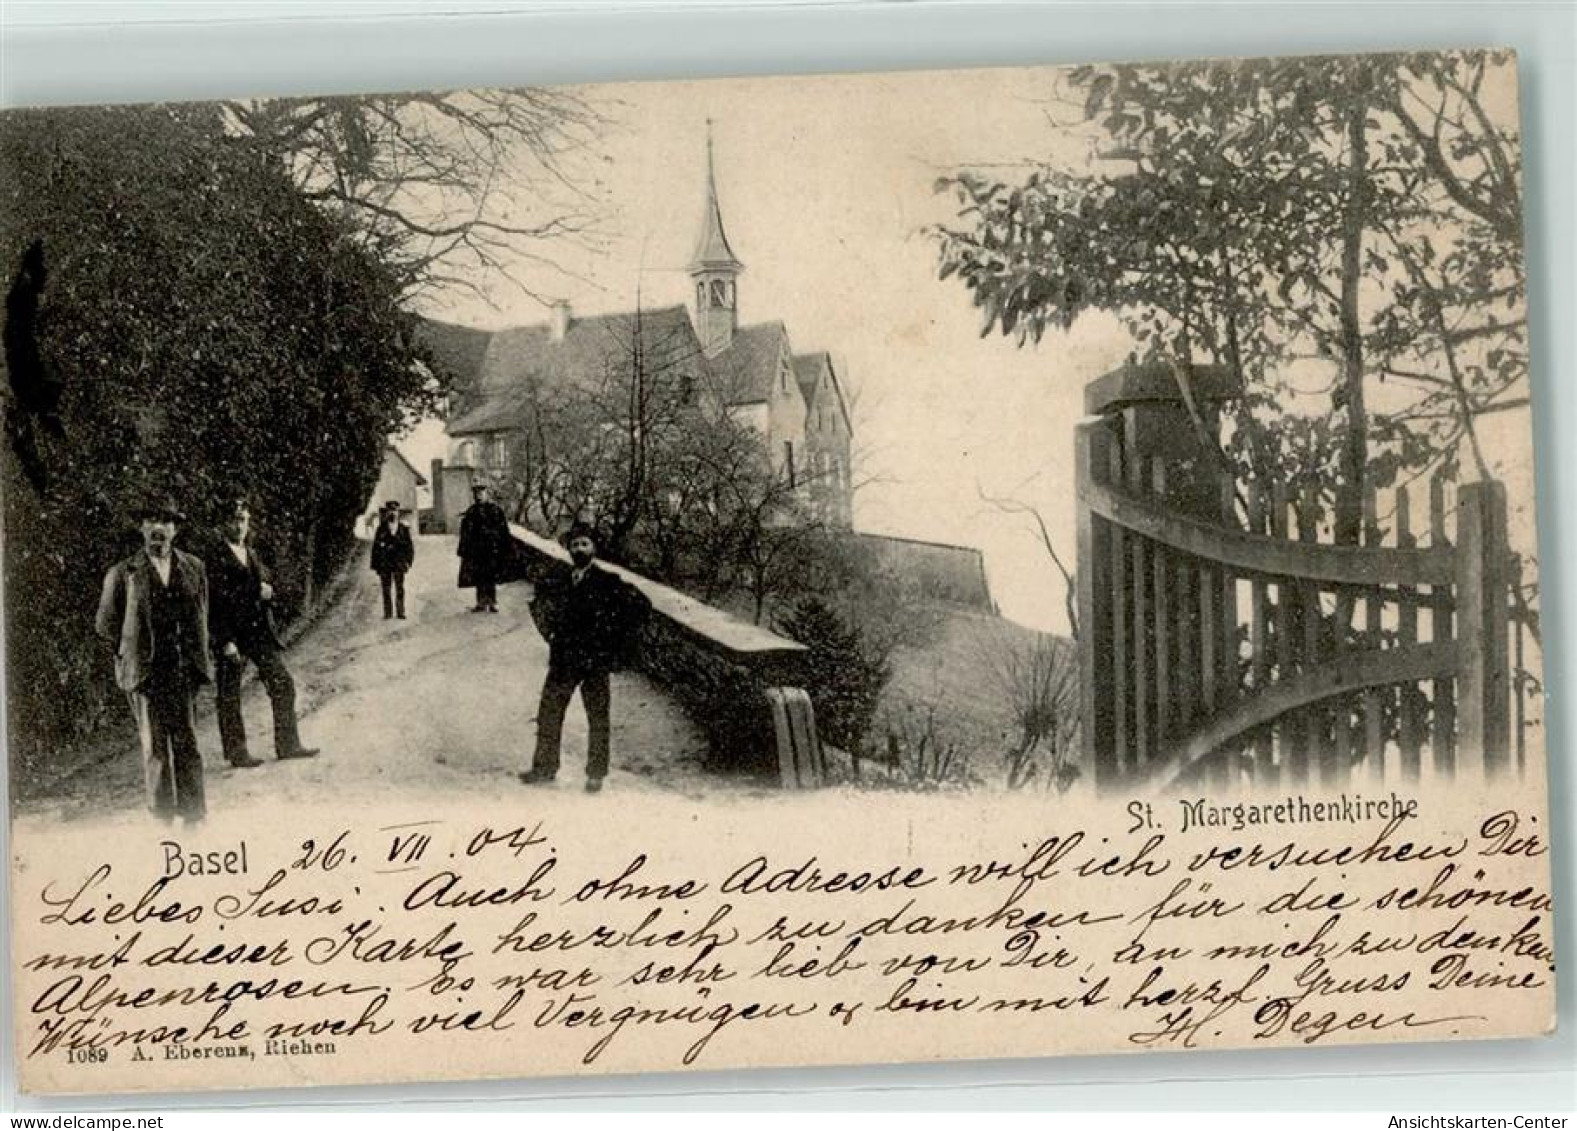 St. Margarethenkirche
Basel 26. VII. 04.
Liebes Susi. Auch ohne Adresse will ich versuchen Dir
mit dieser Karte herzlich zu danken für die schönen
Alpenrosen. Es war sehr lieb von Dir, an mich zu denken.
Wünsche noch viel Vergnügen & bin mit herzl. Gruss Deine
H. Degen
1089 A. Eberenz, Riehen
delcampe.net
Ansichtskarten-Center